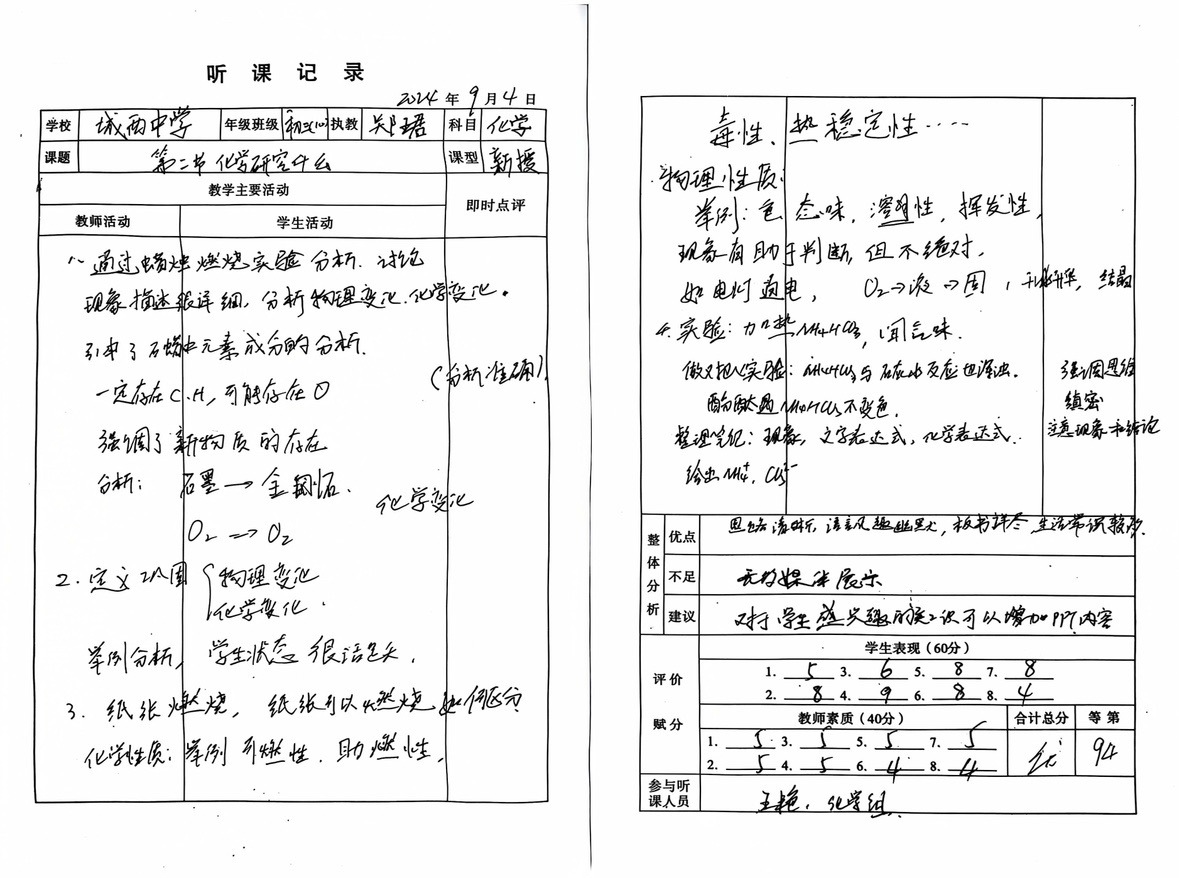 听课记录
2024年9月4日
学校 城西中学 年级班级 初三(10) 执教 郑珺 科目 化学
课题 第二节 化学研究什么 课型 新授
教学主要活动 即时点评
教师活动 学生活动
1、通过蜡烛燃烧实验分析. 讨论
现象描述很详细, 分析物理变化.化学变化。
引申了石蜡中元素成分的分析.
(分析准确)
一定存在C.H, 可能存在O
强调了新物质的存在
分析: 石墨→金刚石.
化学变化
O₂→O₂
2.定义 巩固 物理变化
化学变化.
举例分析, 学生状态很活跃.
3. 纸张燃烧, 纸张可以燃烧 如何区分
化学性质: 举例 可燃性. 助燃性.
毒性、热稳定性····
物理性质:
举例: 色 态 味, 溶解性, 挥发性,
现象有助于判断, 但不绝对.
如电灯通电, O₂→液→固, 升华, 结晶
4.实验: 加热NH₄HCO₃, 闻气味.
做对比实验: NH₄HCO₃与石灰水反应也浑浊.
强调思维
酚酞遇NH₄HCO₃不变色.
缜密
整理笔记: 现象, 文字表达式, 化学表达式.
注意现象和结论
给出NH₄⁺, CO₃²⁻
整体分析
优点 思路清晰, 语言风趣幽默, 板书详尽 生活常识较多.
不足 无多媒体展示
建议 对于学生感兴趣的知识可以增加PPT内容
评价赋分
学生表现（60分）
1. 5 3. 6 5. 8 7. 8
2. 8 4. 9 6. 8 8. 4
教师素质（40分） 合计总分 等第
1. 5 3. 5 5. 5 7. 5 优 94
2. 5 4. 5 6. 4 8. 4
参与听课人员 王艳, 化学组.